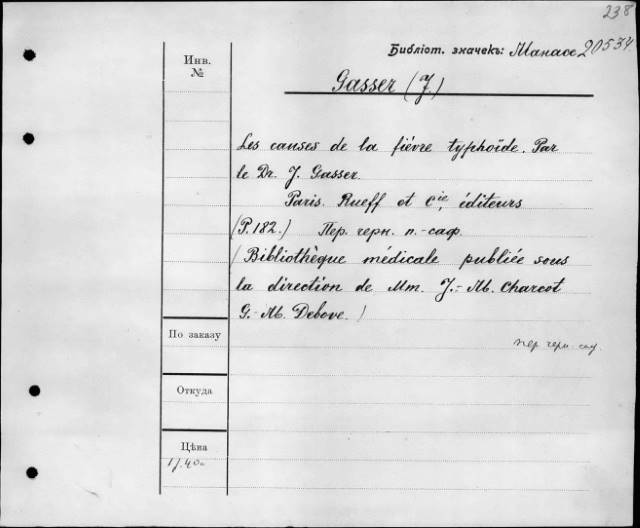 238
Библіот. значекъ: Манасе 20534
Инв.
№
Gasser (J)
Les causes de la fièvre typhoïde. Par
le Dr. J. Gasser.
Paris. Rueff et Cie, éditeurs
(P. 182.) Пер. черн. п.-саф.
(Bibliothèque médicale publiée sous
la direction de Mm. J.-M. Charcot
G.-M. Debove.)
пер. черн. саф.
По заказу
Откуда
Цѣна